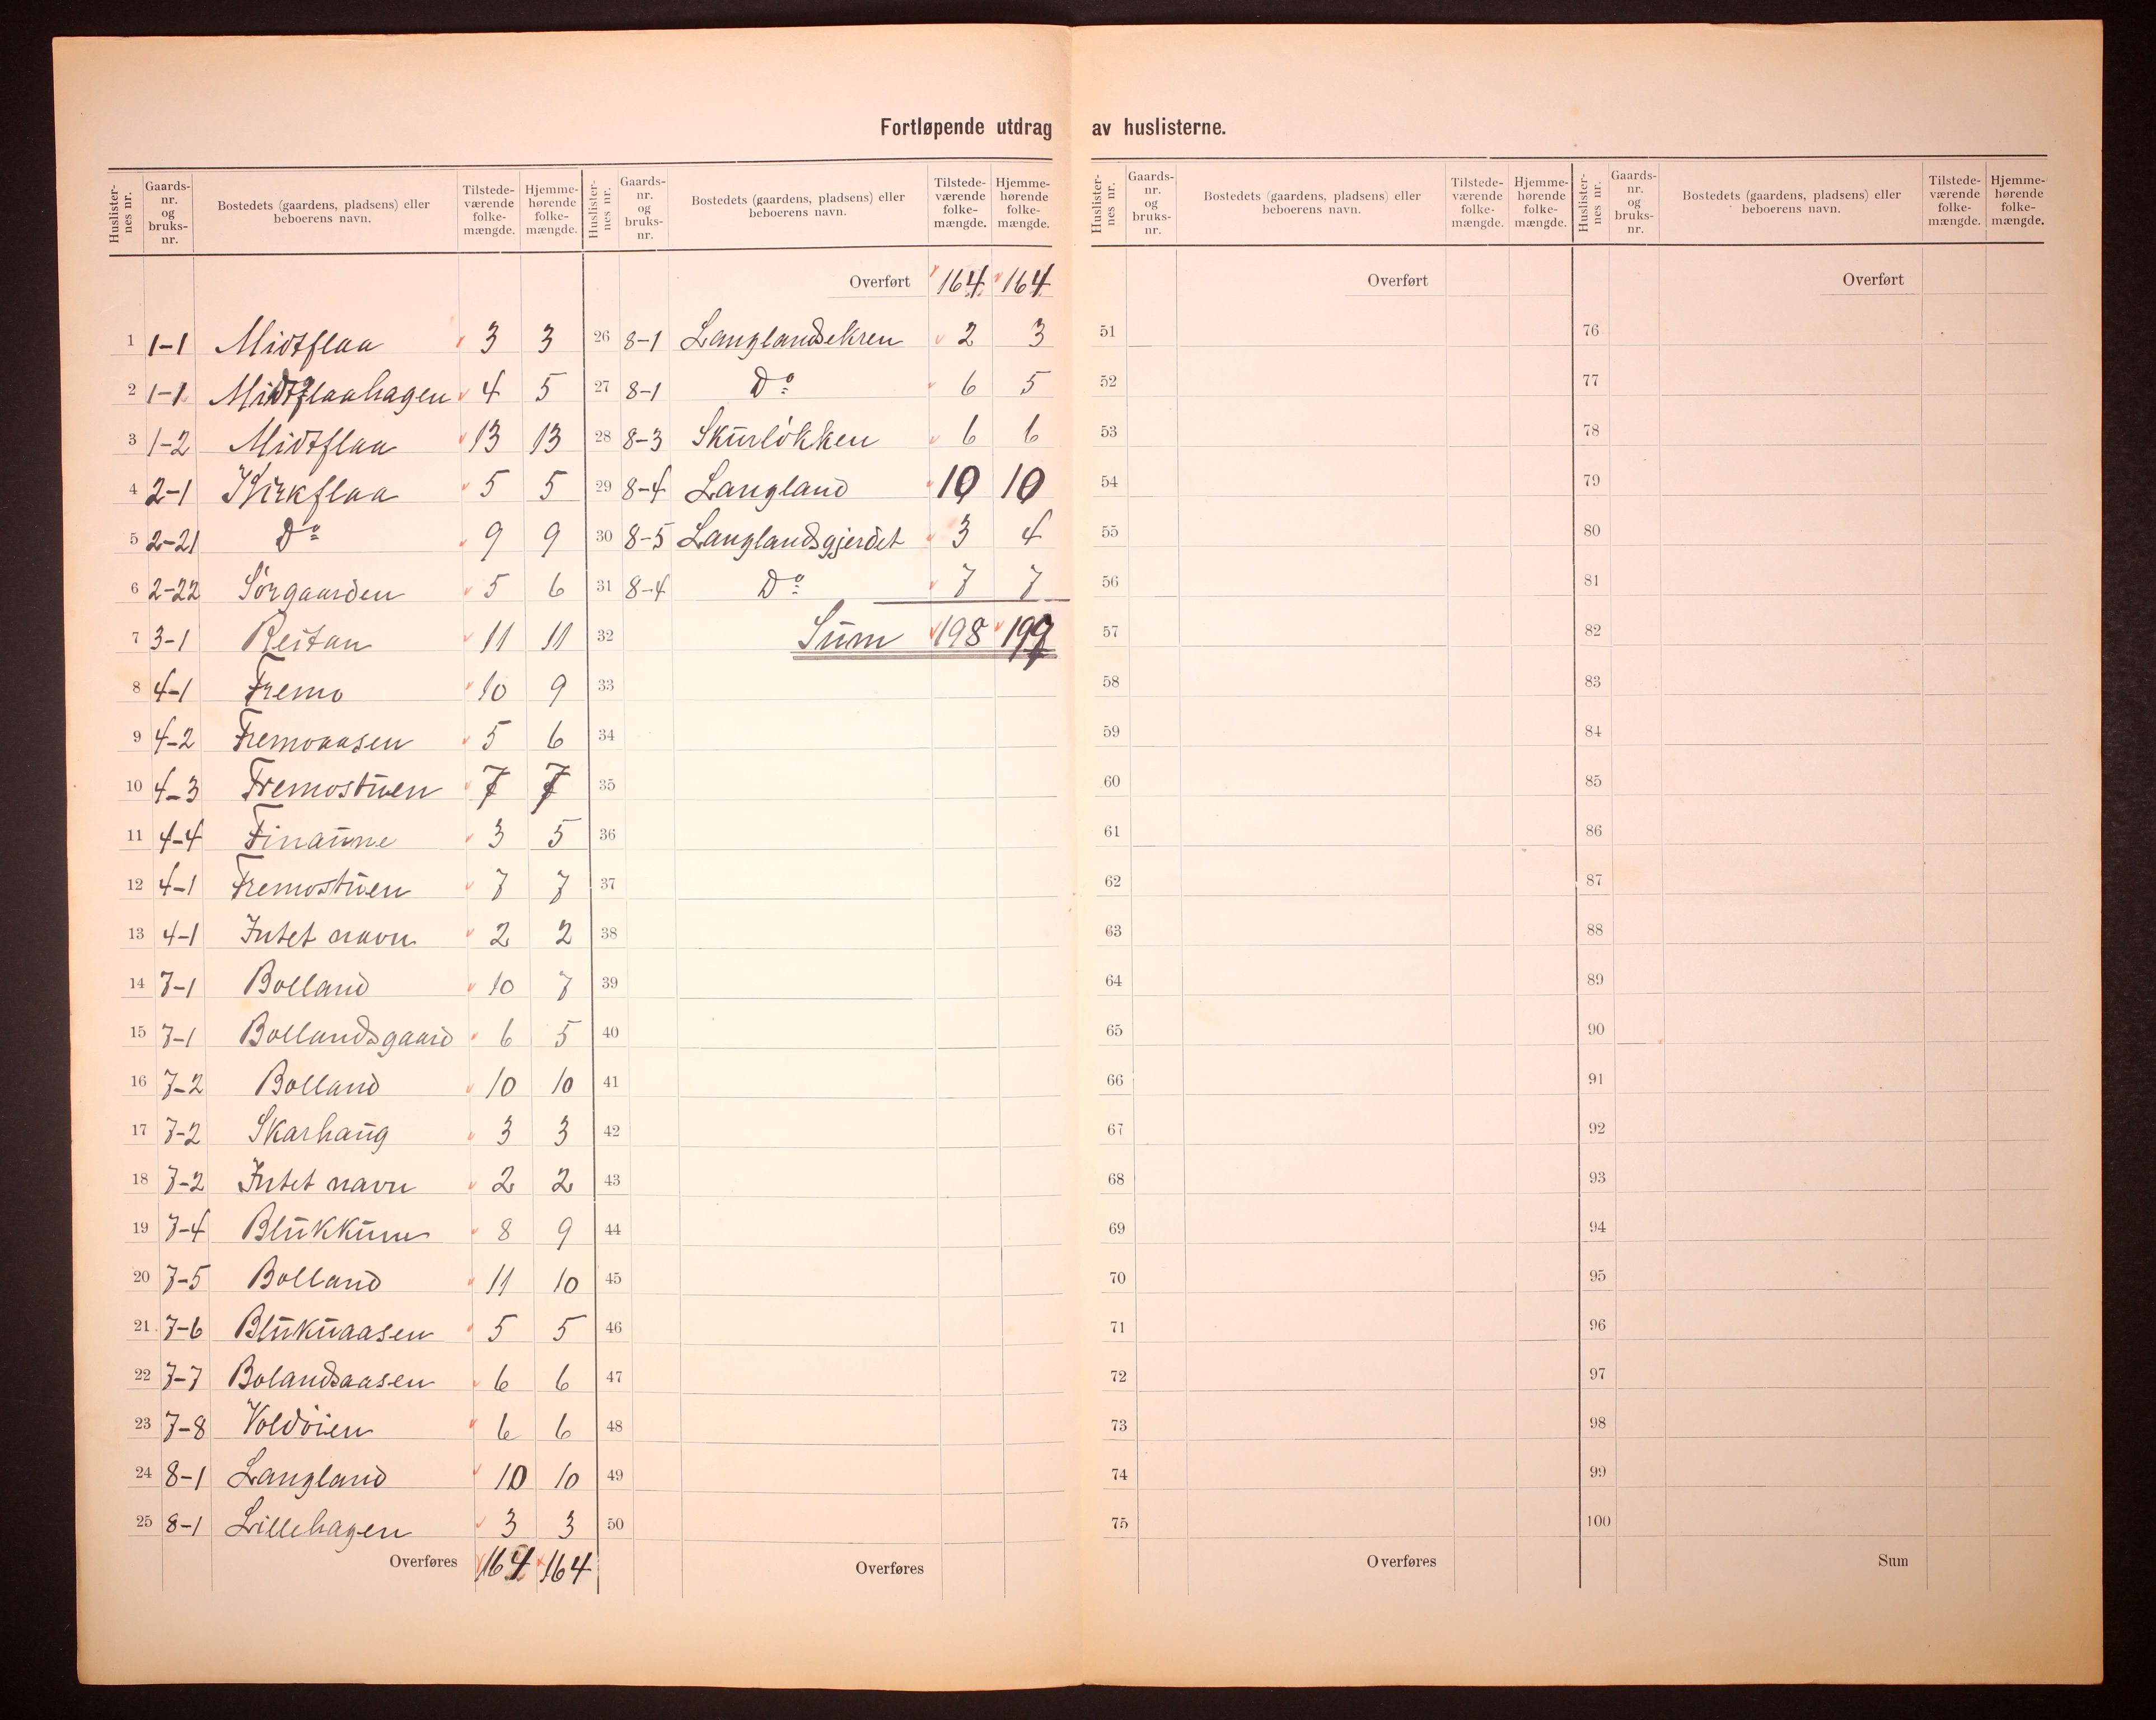 Fortløpende utdrag av huslisterne.
Huslister-nes nr. Gaards-nr. og bruks-nr. Bostedets (gaardens, pladsens) eller beboerens navn. Tilstede-værende folke-mængde. Hjemme-hørende folke-mængde.
1 1-1 Midtflaa 3 3
2 1-1 Midtflaahagen 4 5
3 1-2 Midtflaa 13 13
4 2-1 Kirkflaa 5 5
5 2-21 Do 9 9
6 2-22 Sörgaarden 5 6
7 3-1 Reitan 11 11
8 4-1 Fremo 10 9
9 4-2 Fremoaasen 5 6
10 4-3 Fremostuen 7 7
11 4-4 Finaune 3 5
12 4-1 Fremostuen 7 7
13 4-1 Intet navn 2 2
14 7-1 Bolland 10 7
15 7-1 Bollandsgaard 6 5
16 7-2 Bolland 10 10
17 7-2 Skarhaug 3 3
18 7-2 Intet navn 2 2
19 7-4 Blukkum 8 9
20 7-5 Bolland 11 10
21 7-6 Blukuaasen 5 5
22 7-7 Bolandsaasen 6 6
23 7-8 Voldöien 6 6
24 8-1 Langland 10 10
25 8-1 Lillehagen 3 3
Overføres 164 164
Huslister-nes nr. Gaards-nr. og bruks-nr. Bostedets (gaardens, pladsens) eller beboerens navn. Tilstede-værende folke-mængde. Hjemme-hørende folke-mængde.
Overført 164 164
26 8-1 Langlandsekren 2 3
27 8-1 Do 6 5
28 8-3 Skurlökken 6 6
29 8-4 Langland 10 10
30 8-5 Langlandsgjerdet 3 4
31 8-4 Do 7 7
32 Sum 198 199
33
34
35
36
37
38
39
40
41
42
43
44
45
46
47
48
49
50
Overføres
Huslister-nes nr. Gaards-nr. og bruks-nr. Bostedets (gaardens, pladsens) eller beboerens navn. Tilstede-værende folke-mængde. Hjemme-hørende folke-mængde.
Overført
51
52
53
54
55
56
57
58
59
60
61
62
63
64
65
66
67
68
69
70
71
72
73
74
75
Overføres
Huslister-nes nr. Gaards-nr. og bruks-nr. Bostedets (gaardens, pladsens) eller beboerens navn. Tilstede-værende folke-mængde. Hjemme-hørende folke-mængde.
Overført
76
77
78
79
80
81
82
83
84
85
86
87
88
89
90
91
92
93
94
95
96
97
98
99
100
Sum